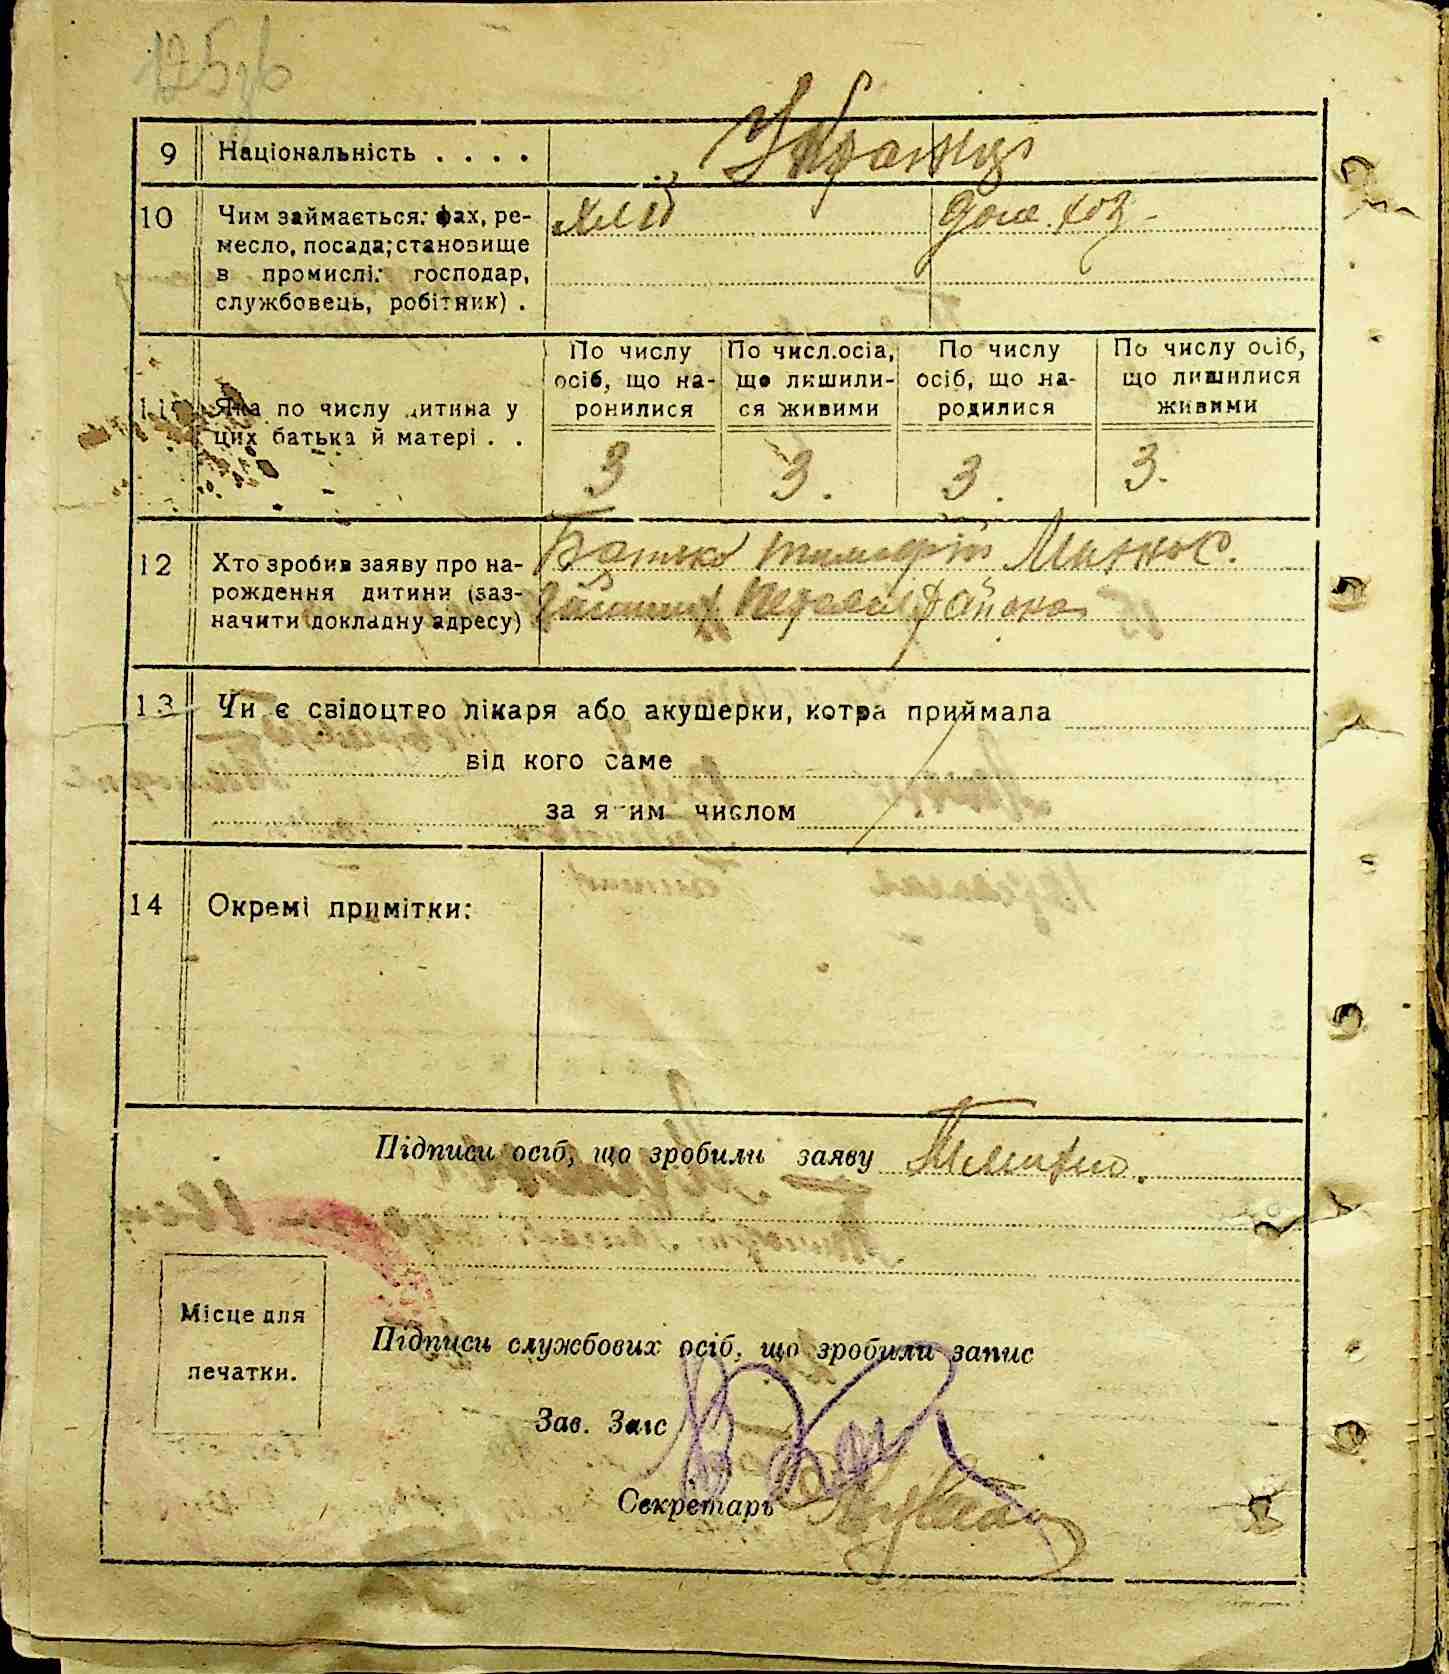 9 Національність . . . . Українці
10 Чим займається: фах, ре-
месло, посада; становище
в промислі: господар,
службовець, робітник) .
хліб
дом. хоз.
11 Яка по числу дитина у
цих батька й матері . .
По числу осіб, що на-ронилися
По числ.осіа, що лишили-ся живими
По числу осіб, що на-родилися
По числу осіб, що лишилися живими
3 3. 3. 3.
12 Хто зробив заяву про на-
рождення дитини (заз-
начити докладну адресу)
Батько Тимофій
района
13 Чи є свідоцтво лікаря або акушерки, котра приймала
від кого саме
за яким числом
14 Окремі примітки:
Підписи осіб, що зробили заяву
Місце для
печатки.
Підписи службових осіб, що зробили запис
Зав. Загс
Секретарь